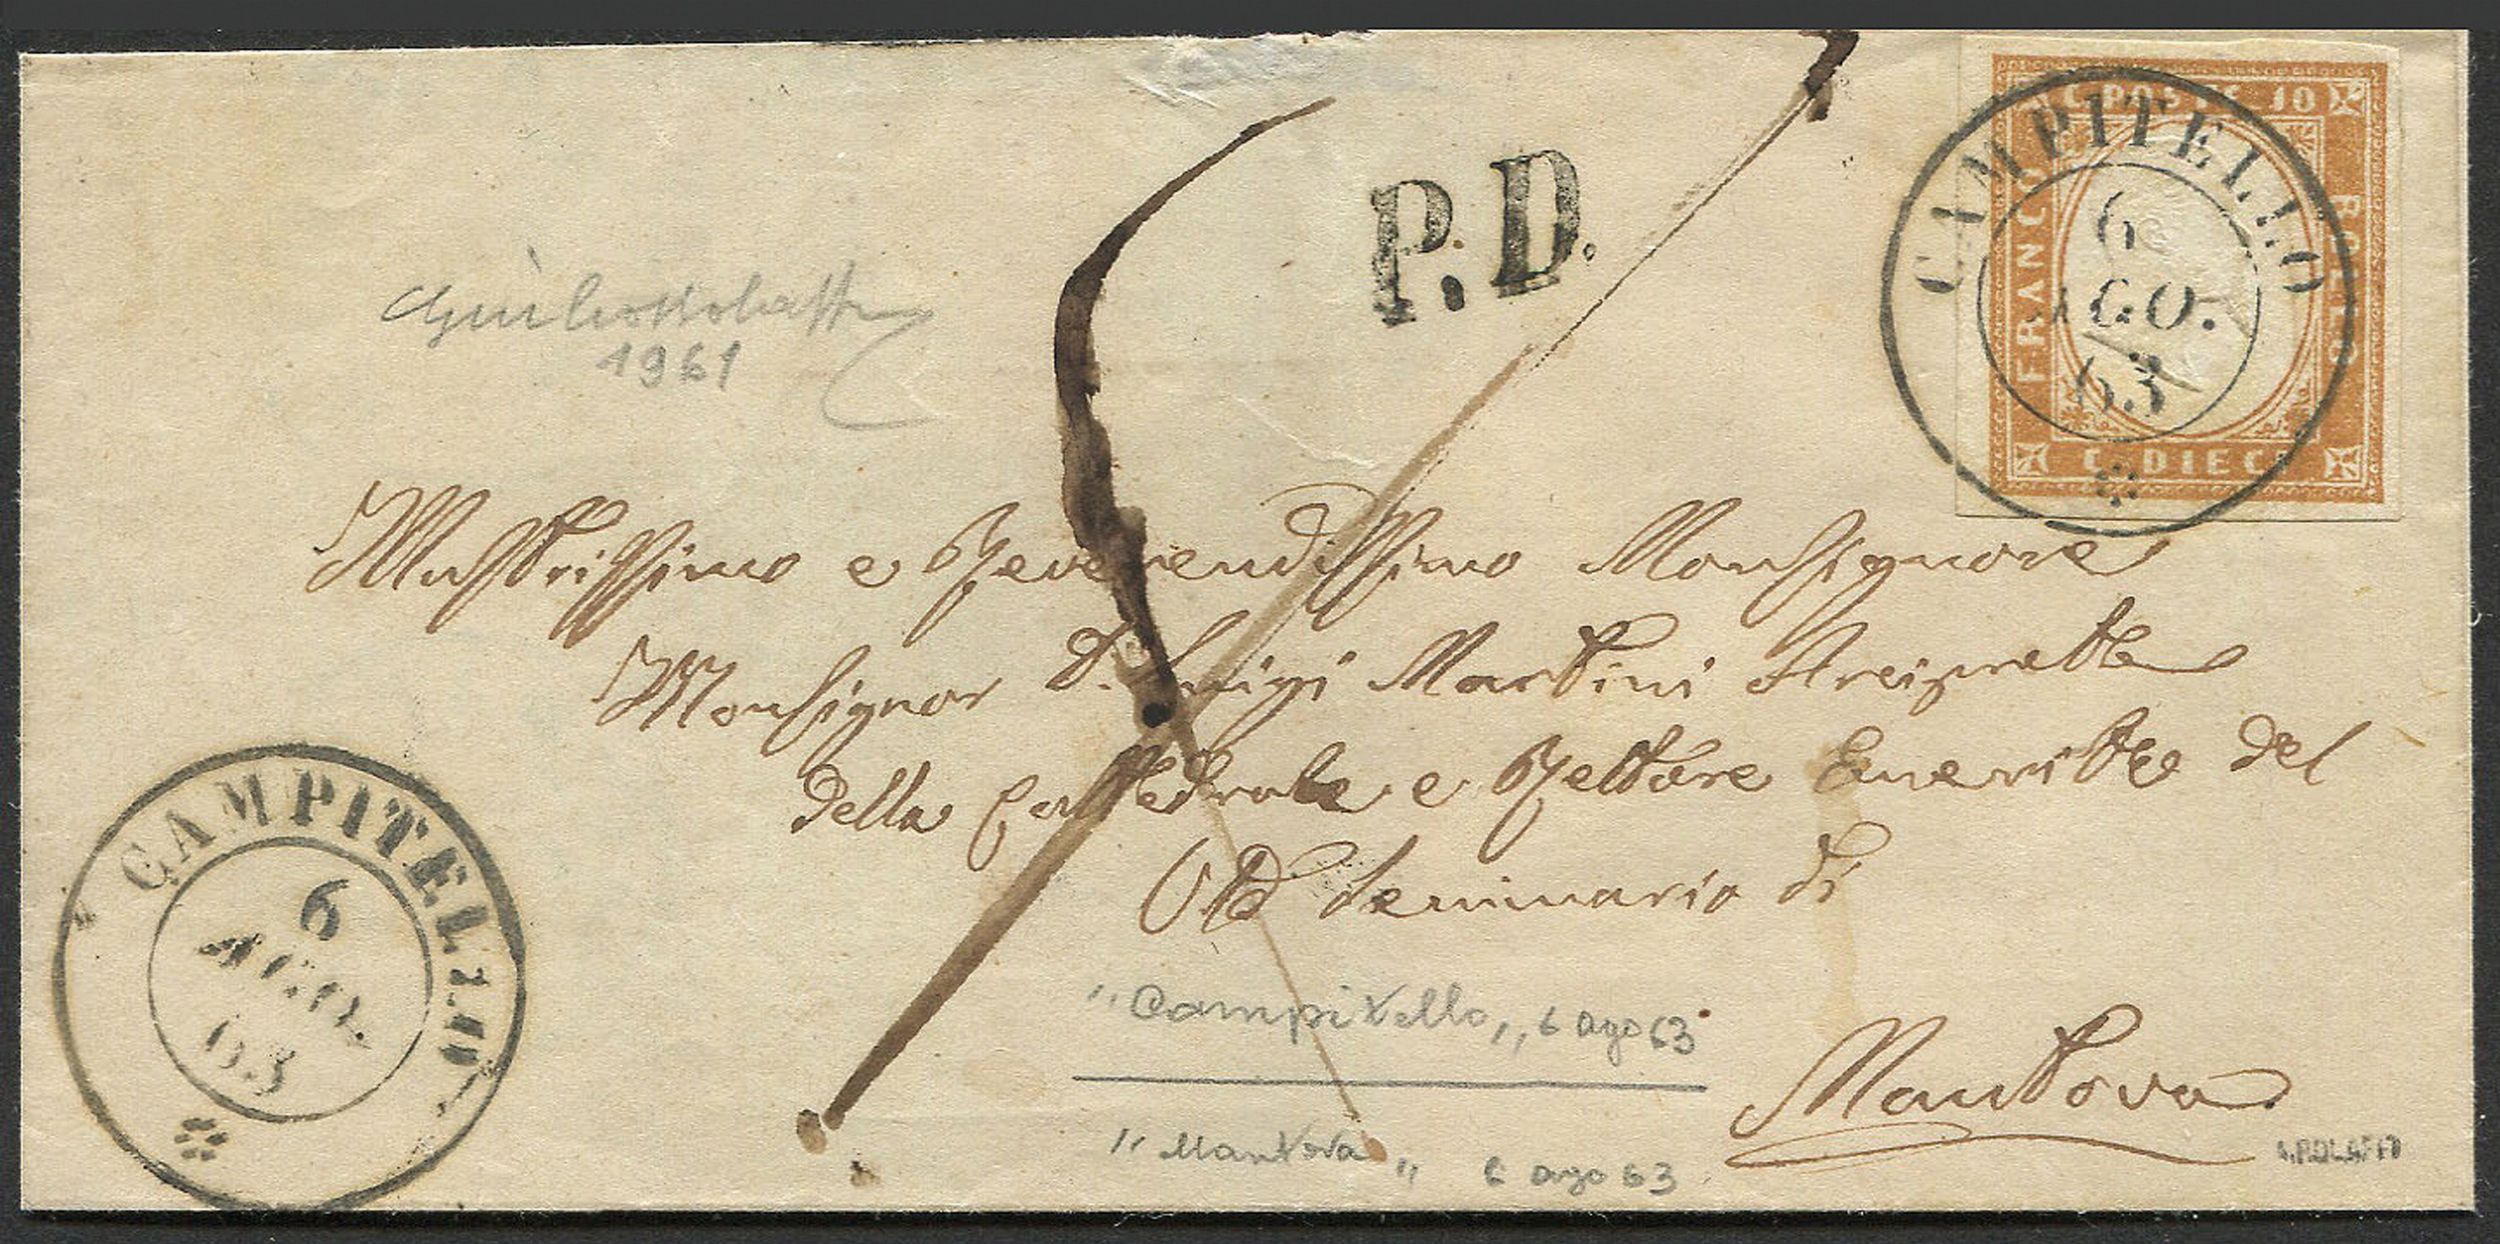 C. POSTE 10
FRANCO
BOLLO
C. DIECI
CAMPITELLO
6
AGO.
63
P.D.
1961
Illustrissimo e Reverendissimo Monsignore
Monsignor D. Luigi Martini Arciprette
della Cattedrale e Rettore Emeritto del
Ve Seminario di
Mantova
CAMPITELLO
6
AGO.
63
"Campitello" 6 ago 63
"Mantova" 6 ago 63